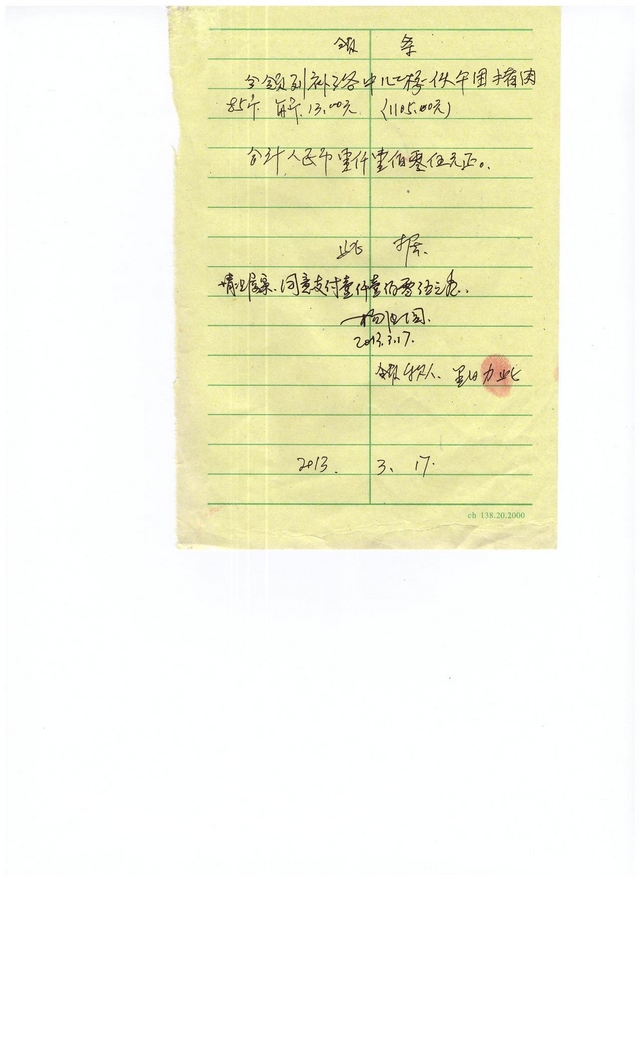 领 条
今领到补子各中心校伙午团猪肉
85斤 每斤 13.00元 (1105.00元)
合计人民币壹仟壹佰零伍元正。
此 据
情况属实.同意支付壹仟壹佰零伍元。
国.
2013.3.17.
领款人. 日力此
2013. 3. 17.
ch 138.20.2000